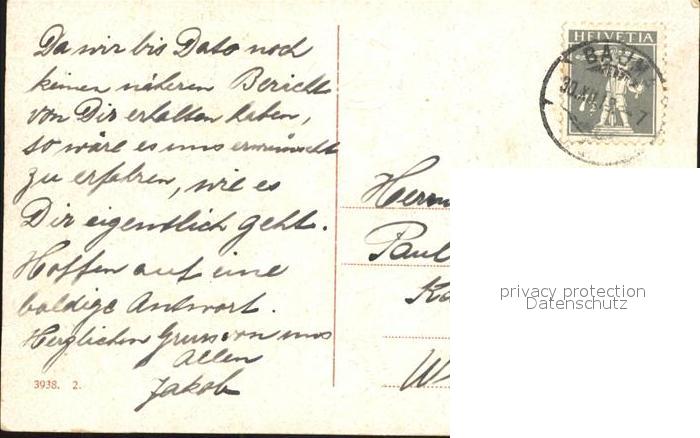 Da wir bis Dato noch
keinen näheren Bericht
von Dir erhalten haben,
so wäre es uns erwünscht
zu erfahren, wie es
Dir eigentlich geht.
Hoffen auf eine
baldige Antwort.
Herzlichen Gruss von uns
Allen
Jakob
3938. 2.
HELVETIA
BAUM
30.XII
Herrn
Paul
privacy protection
Datenschutz